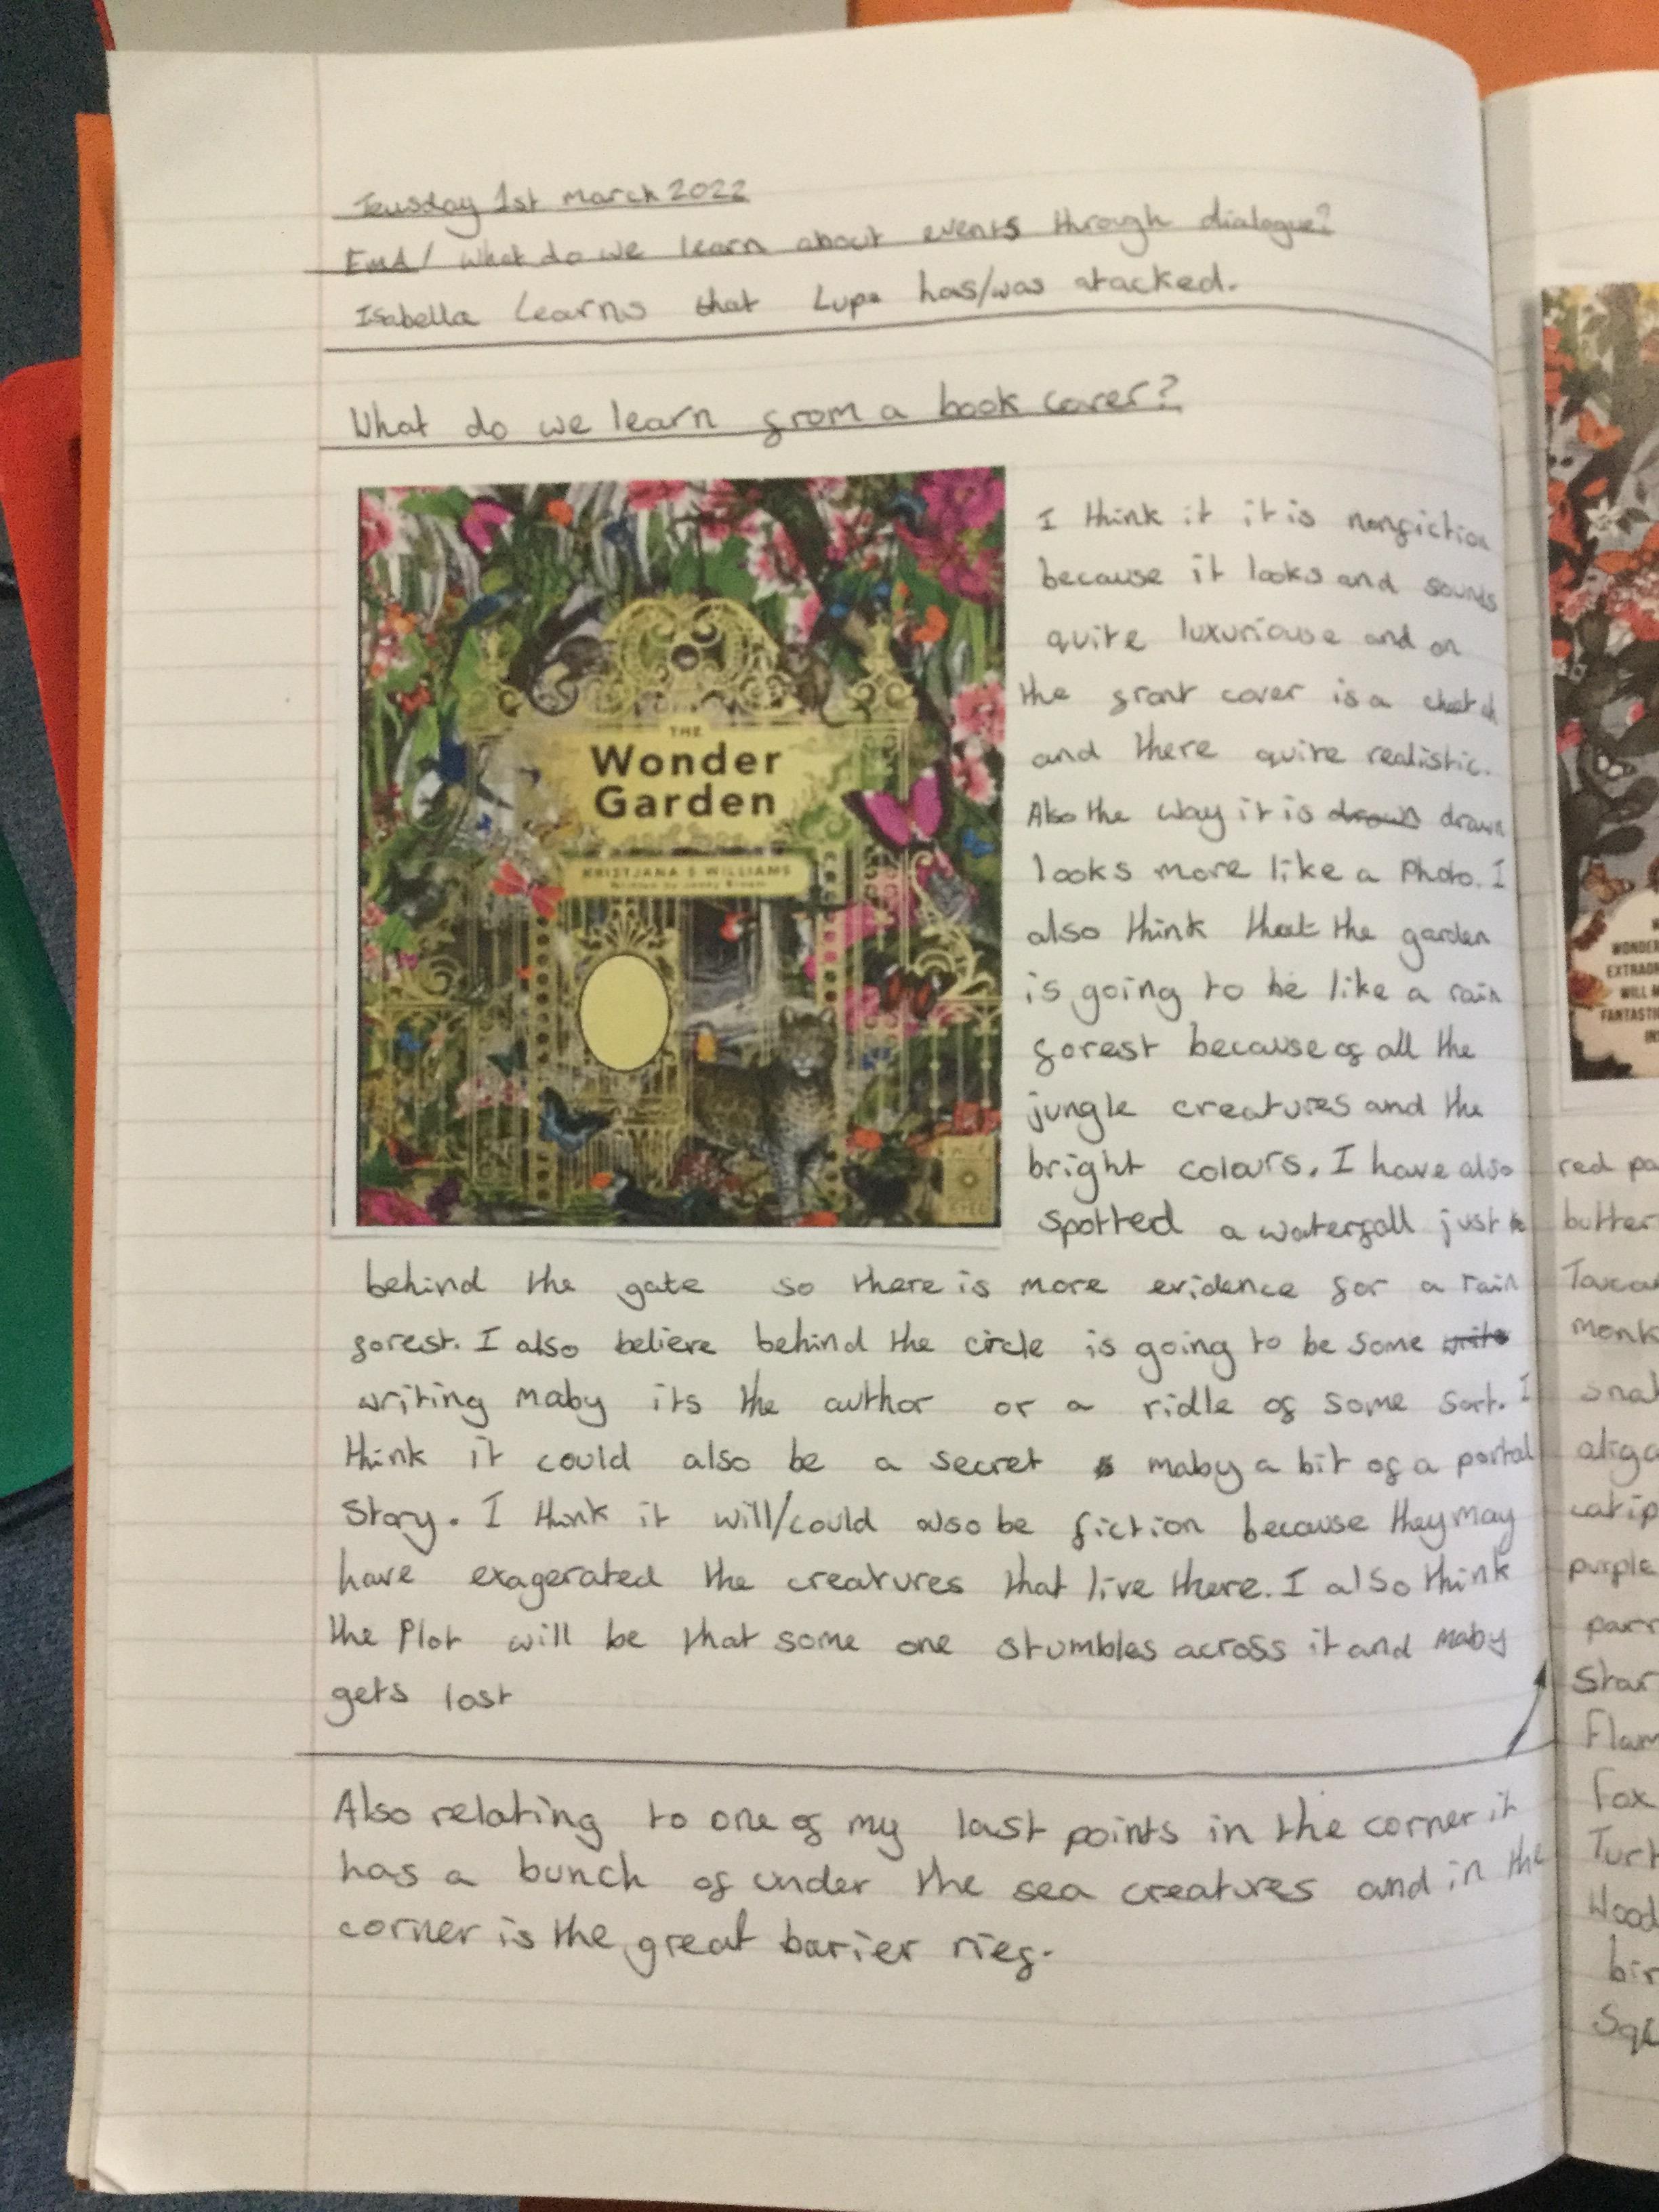 Teusday 1st march 2022
EmA/ What do we learn about events through dialogue?
Isabella learns that Lupe has/was atacked.
What do we learn from a book cover?
THE
Wonder
Garden
KRISTJANA S WILLIAMS
Written by Jenny Broom
I think it it is nonfiction
because it looks and sounds
quite luxuriouse and on
the front cover is a
and there quite realistic.
Also the way it is drown drawn
looks more like a Photo. I
also think that the garden
is going to be like a rain
forest because of all the
jungle creatures and the
bright colours. I have also
spotted a waterfall just
behind the gate so there is more evidence for a rain
forest. I also believe behind the circle is going to be some write
writing maby its the author or a ridle of some sort. I
think it could also be a secret maby a bit of a portal
Story. I think it will/could also be fiction because they may
have exagerated the creatures that live there. I also think
the Plot will be that some one stumbles across it and maby
gets lost
Also relating to one of my last points in the corner it
has a bunch of under the sea creatures and in the
corner is the great barier rief.
WONDER
EXTRAOR
WILL M
FANTASTI
red pa
butter
Tauca
monk
snal
aliga
catip
purple
parr
Star
Flam
Fox
Turt
Wood
bir
Sqe